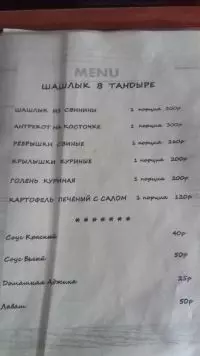 MENU
ШАШЛЫК В ТАНДЫРЕ
ШАШЛЫК ИЗ СВИНИНЫ 1 порция 200р
АНТРЕКОТ НА КОСТОЧКЕ 1 порция 200р
РЕБРЫШКИ СВИНЫЕ 1 порция 160р
КРЫЛЫШКИ КУРИНЫЕ 1 порция 200р
ГОЛЕНЬ КУРИНАЯ 1 порция 200р
КАРТОФЕЛЬ ПЕЧЕНЫЙ С САЛОМ 1 порция 120р
*******
Соус Красный 40р
Соус Белый 50р
Домашняя Аджика 25р
Лаваш 50р